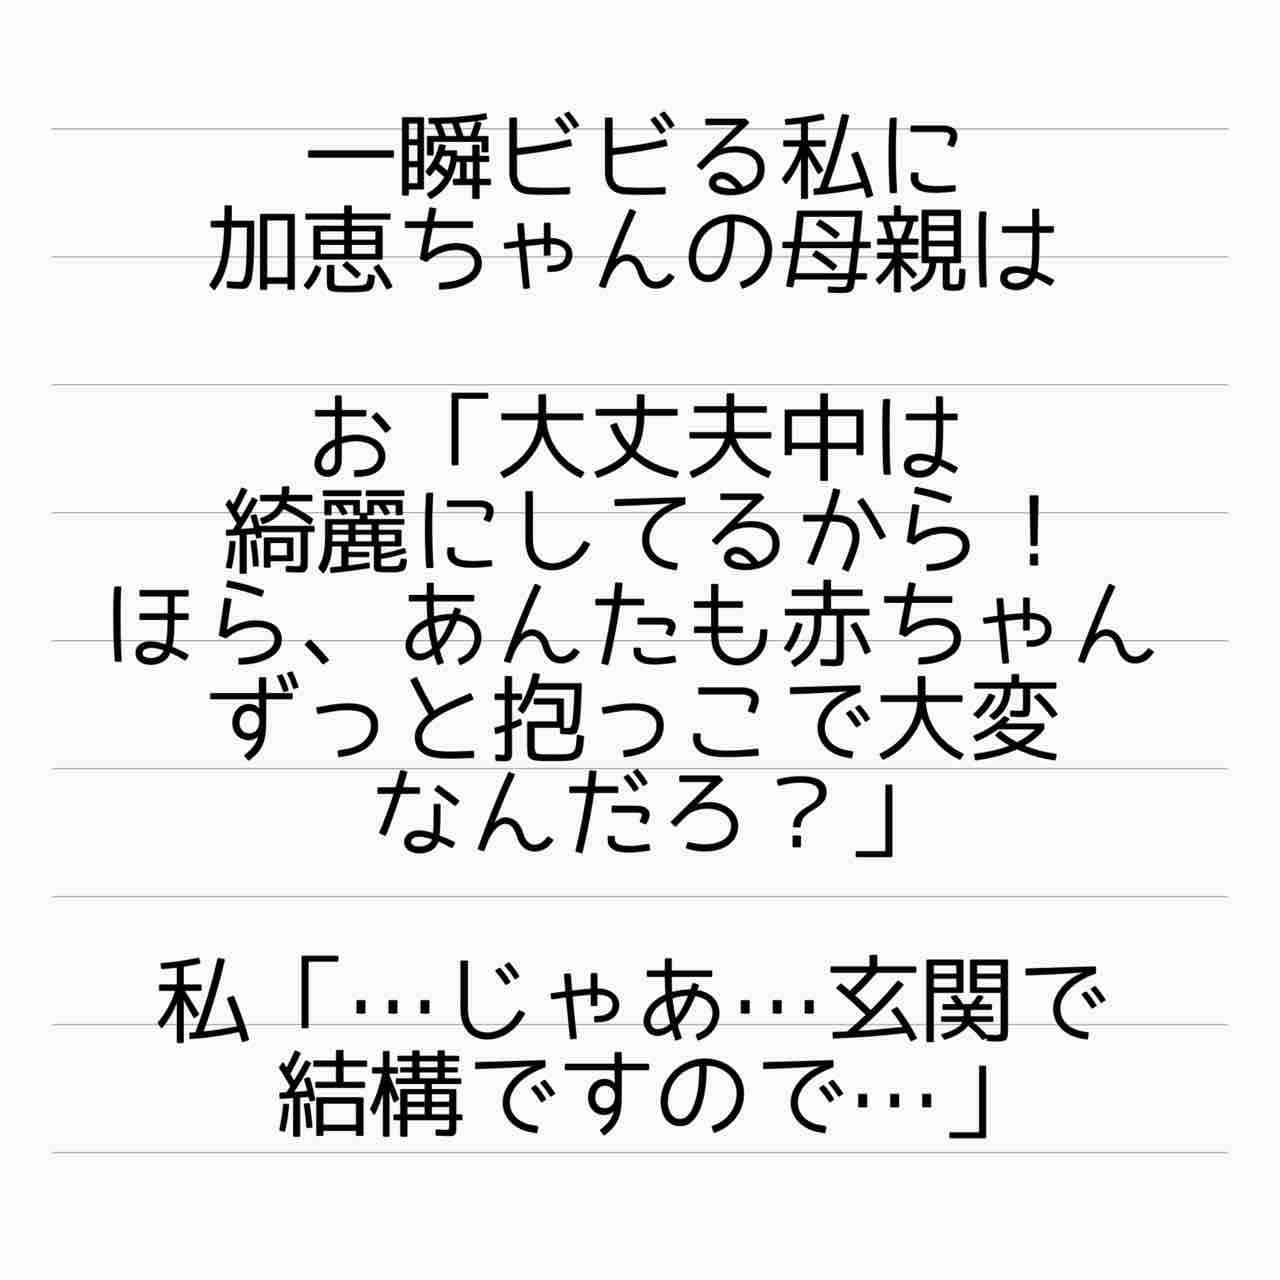 一瞬ビビる私に
加恵ちゃんの母親は
お「大丈夫中は
綺麗にしてるから！
ほら、あんたも赤ちゃん
ずっと抱っこで大変
なんだろ？」
私「…じゃあ…玄関で
結構ですので…」